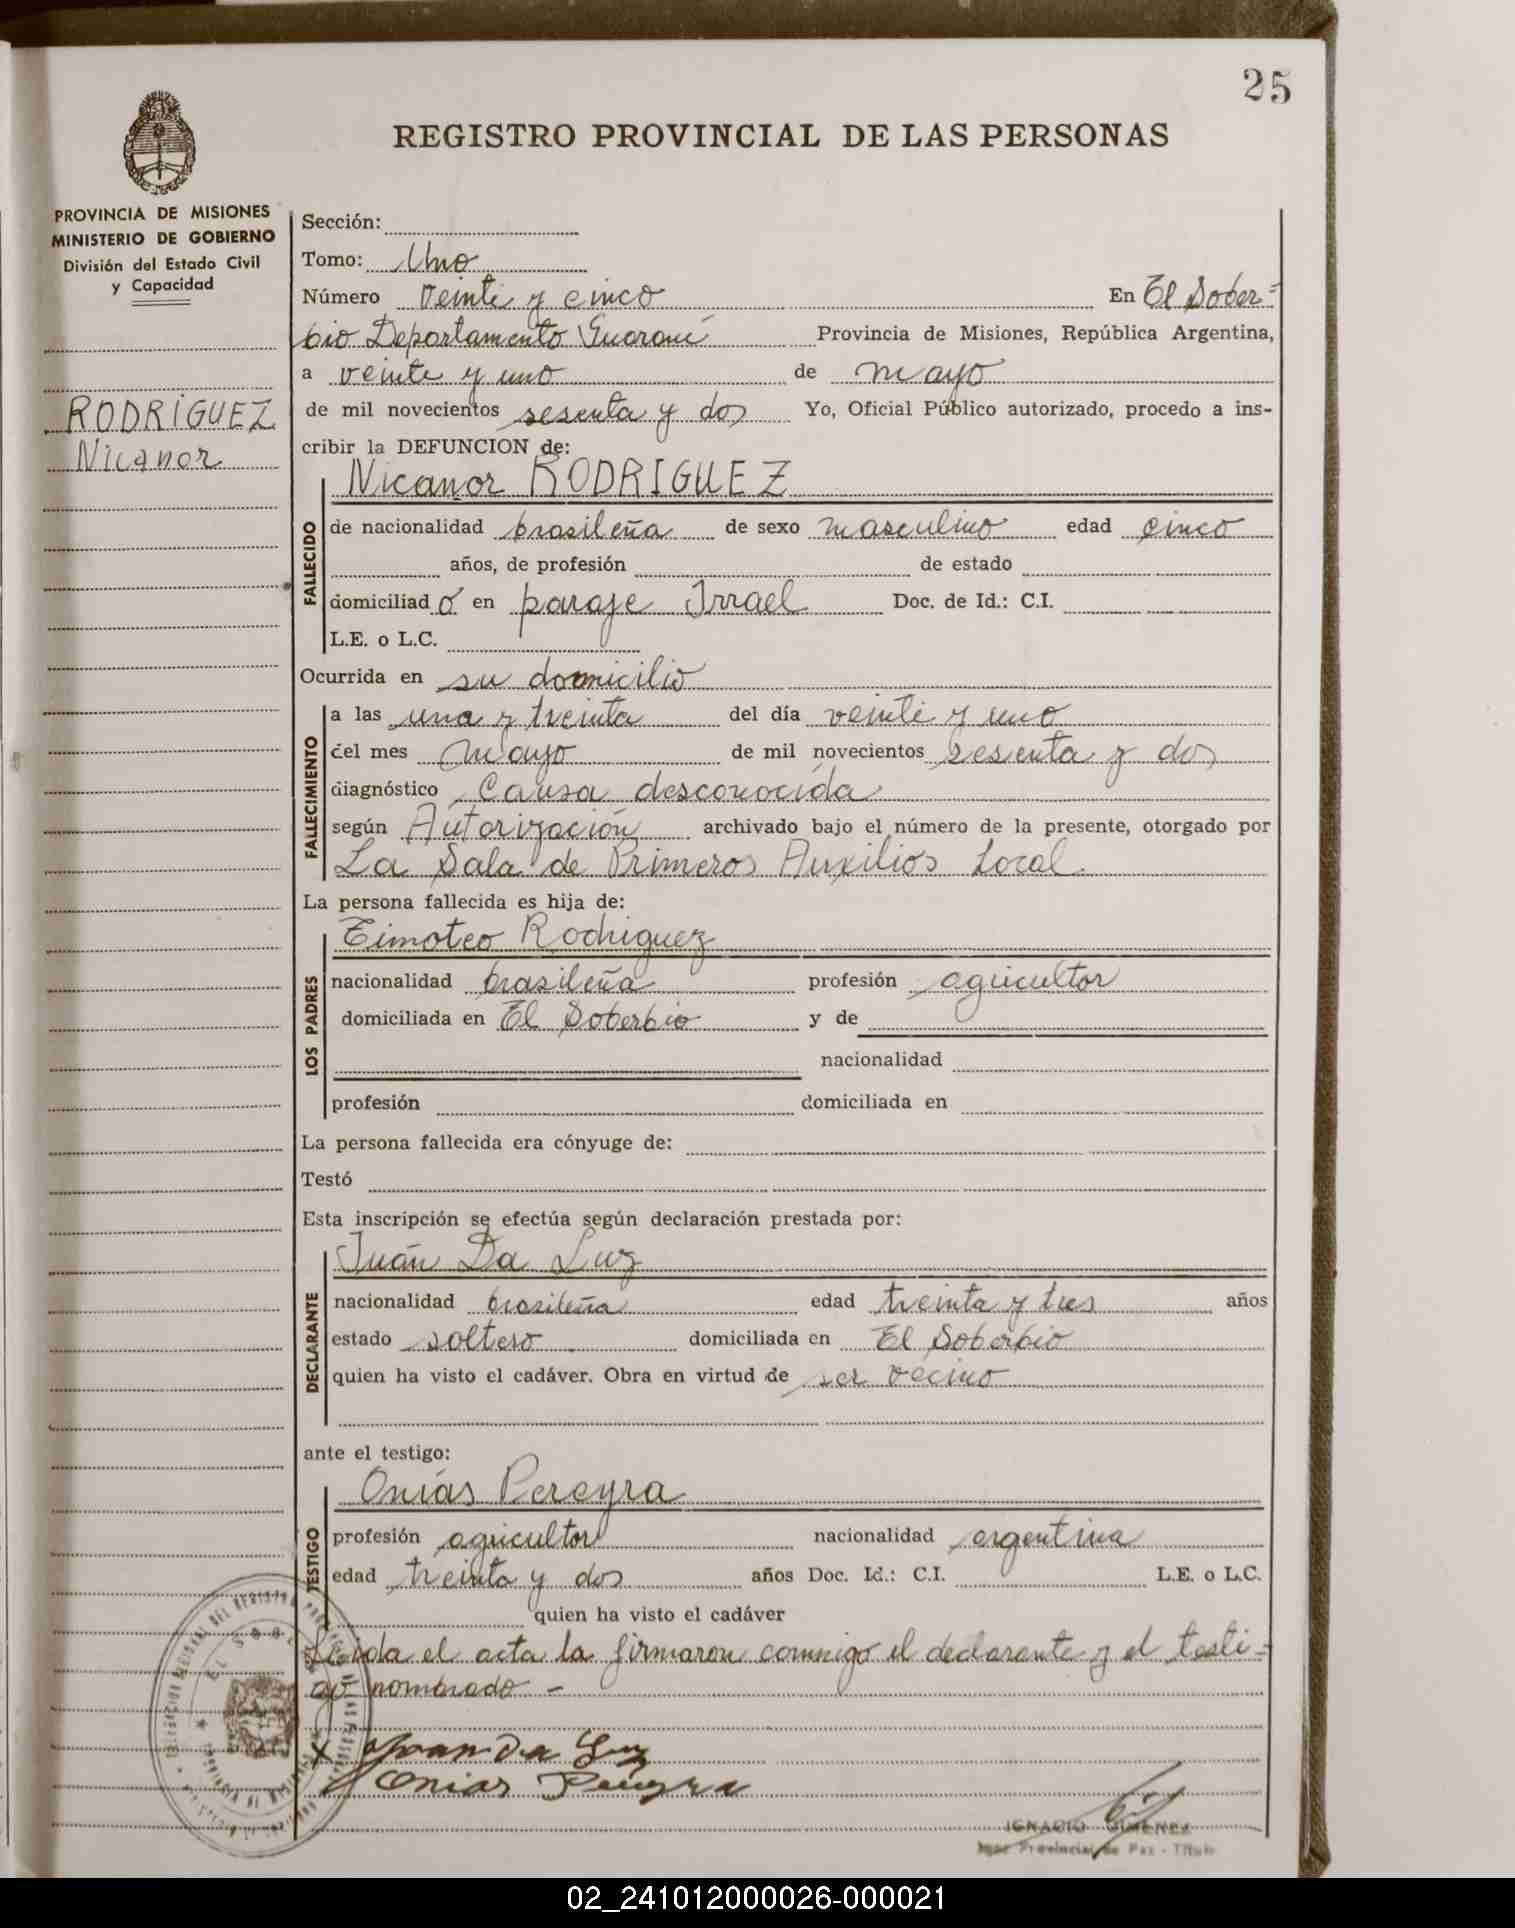 25
REGISTRO PROVINCIAL DE LAS PERSONAS
PROVINCIA DE MISIONES
MINISTERIO DE GOBIERNO
División del Estado Civil
y Capacidad
RODRIGUEZ
Nicanor
Sección:
Tomo: Uno
Número veinte y cinco En El Sober-
bio Departamento Guaraní Provincia de Misiones, República Argentina,
a veinte y uno de mayo
de mil novecientos sesenta y dos Yo, Oficial Público autorizado, procedo a ins-
cribir la DEFUNCION de:
Nicanor RODRIGUEZ
FALLECIDO
de nacionalidad brasileña de sexo masculino edad cinco
años, de profesión de estado
domiciliad o en paraje Irrael Doc. de Id.: C.I.
L.E. o L.C.
Ocurrida en su domicilio
FALLECIMIENTO
a las una y treinta del día veinte y uno
del mes mayo de mil novecientos sesenta y dos
diagnóstico Causa desconocida
según Autorización archivado bajo el número de la presente, otorgado por
La Sala de Primeros Auxilios Local
La persona fallecida es hija de:
LOS PADRES
Timoteo Rodriguez
nacionalidad brasileña profesión agricultor
domiciliada en El Soberbio y de
nacionalidad
profesión domiciliada en
La persona fallecida era cónyuge de:
Testó
Esta inscripción se efectúa según declaración prestada por:
DECLARANTE
Juán Da Luz
nacionalidad brasileña edad treinta y tres años
estado soltero domiciliada en El Soberbio
quien ha visto el cadáver. Obra en virtud de ser vecino
ante el testigo:
TESTIGO
Onías Pereyra
profesión agricultor nacionalidad argentina
edad treinta y dos años Doc. Id.: C.I. L.E. o L.C.
quien ha visto el cadáver
Leida el acta la firmaron conmigo el declarante y el testi-
go nombrado -
x Joan Da Luz
Onias Pereyra
IGNACIO GIMENEZ
Juez Provincial de Paz - Titular
02_241012000026-000021